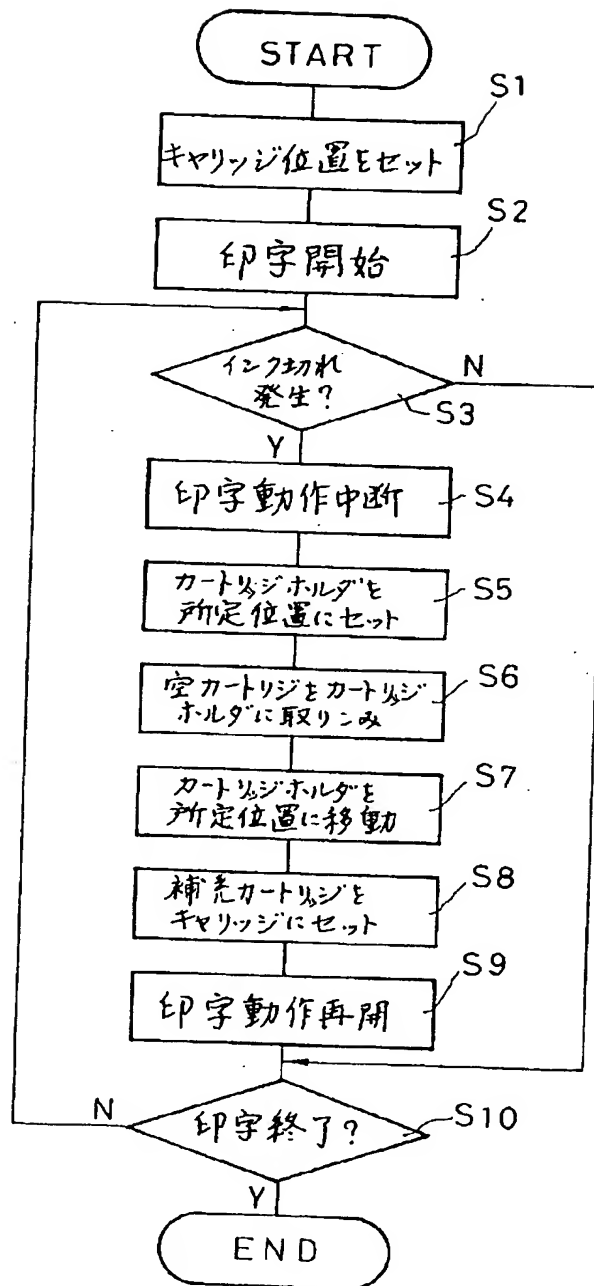 START
S1
キャリッジ位置をセット
S2
印字開始
インク切れ
発生?
N
S3
Y
印字動作中断
S4
カートリッジホルダを
所定位置にセット
S5
空カートリッジをカートリッジ
ホルダに取りこみ
S6
カートリッジホルダを
所定位置に移動
S7
補充カートリッジを
キャリッジにセット
S8
印字動作再開
S9
N
印字終了?
S10
Y
END